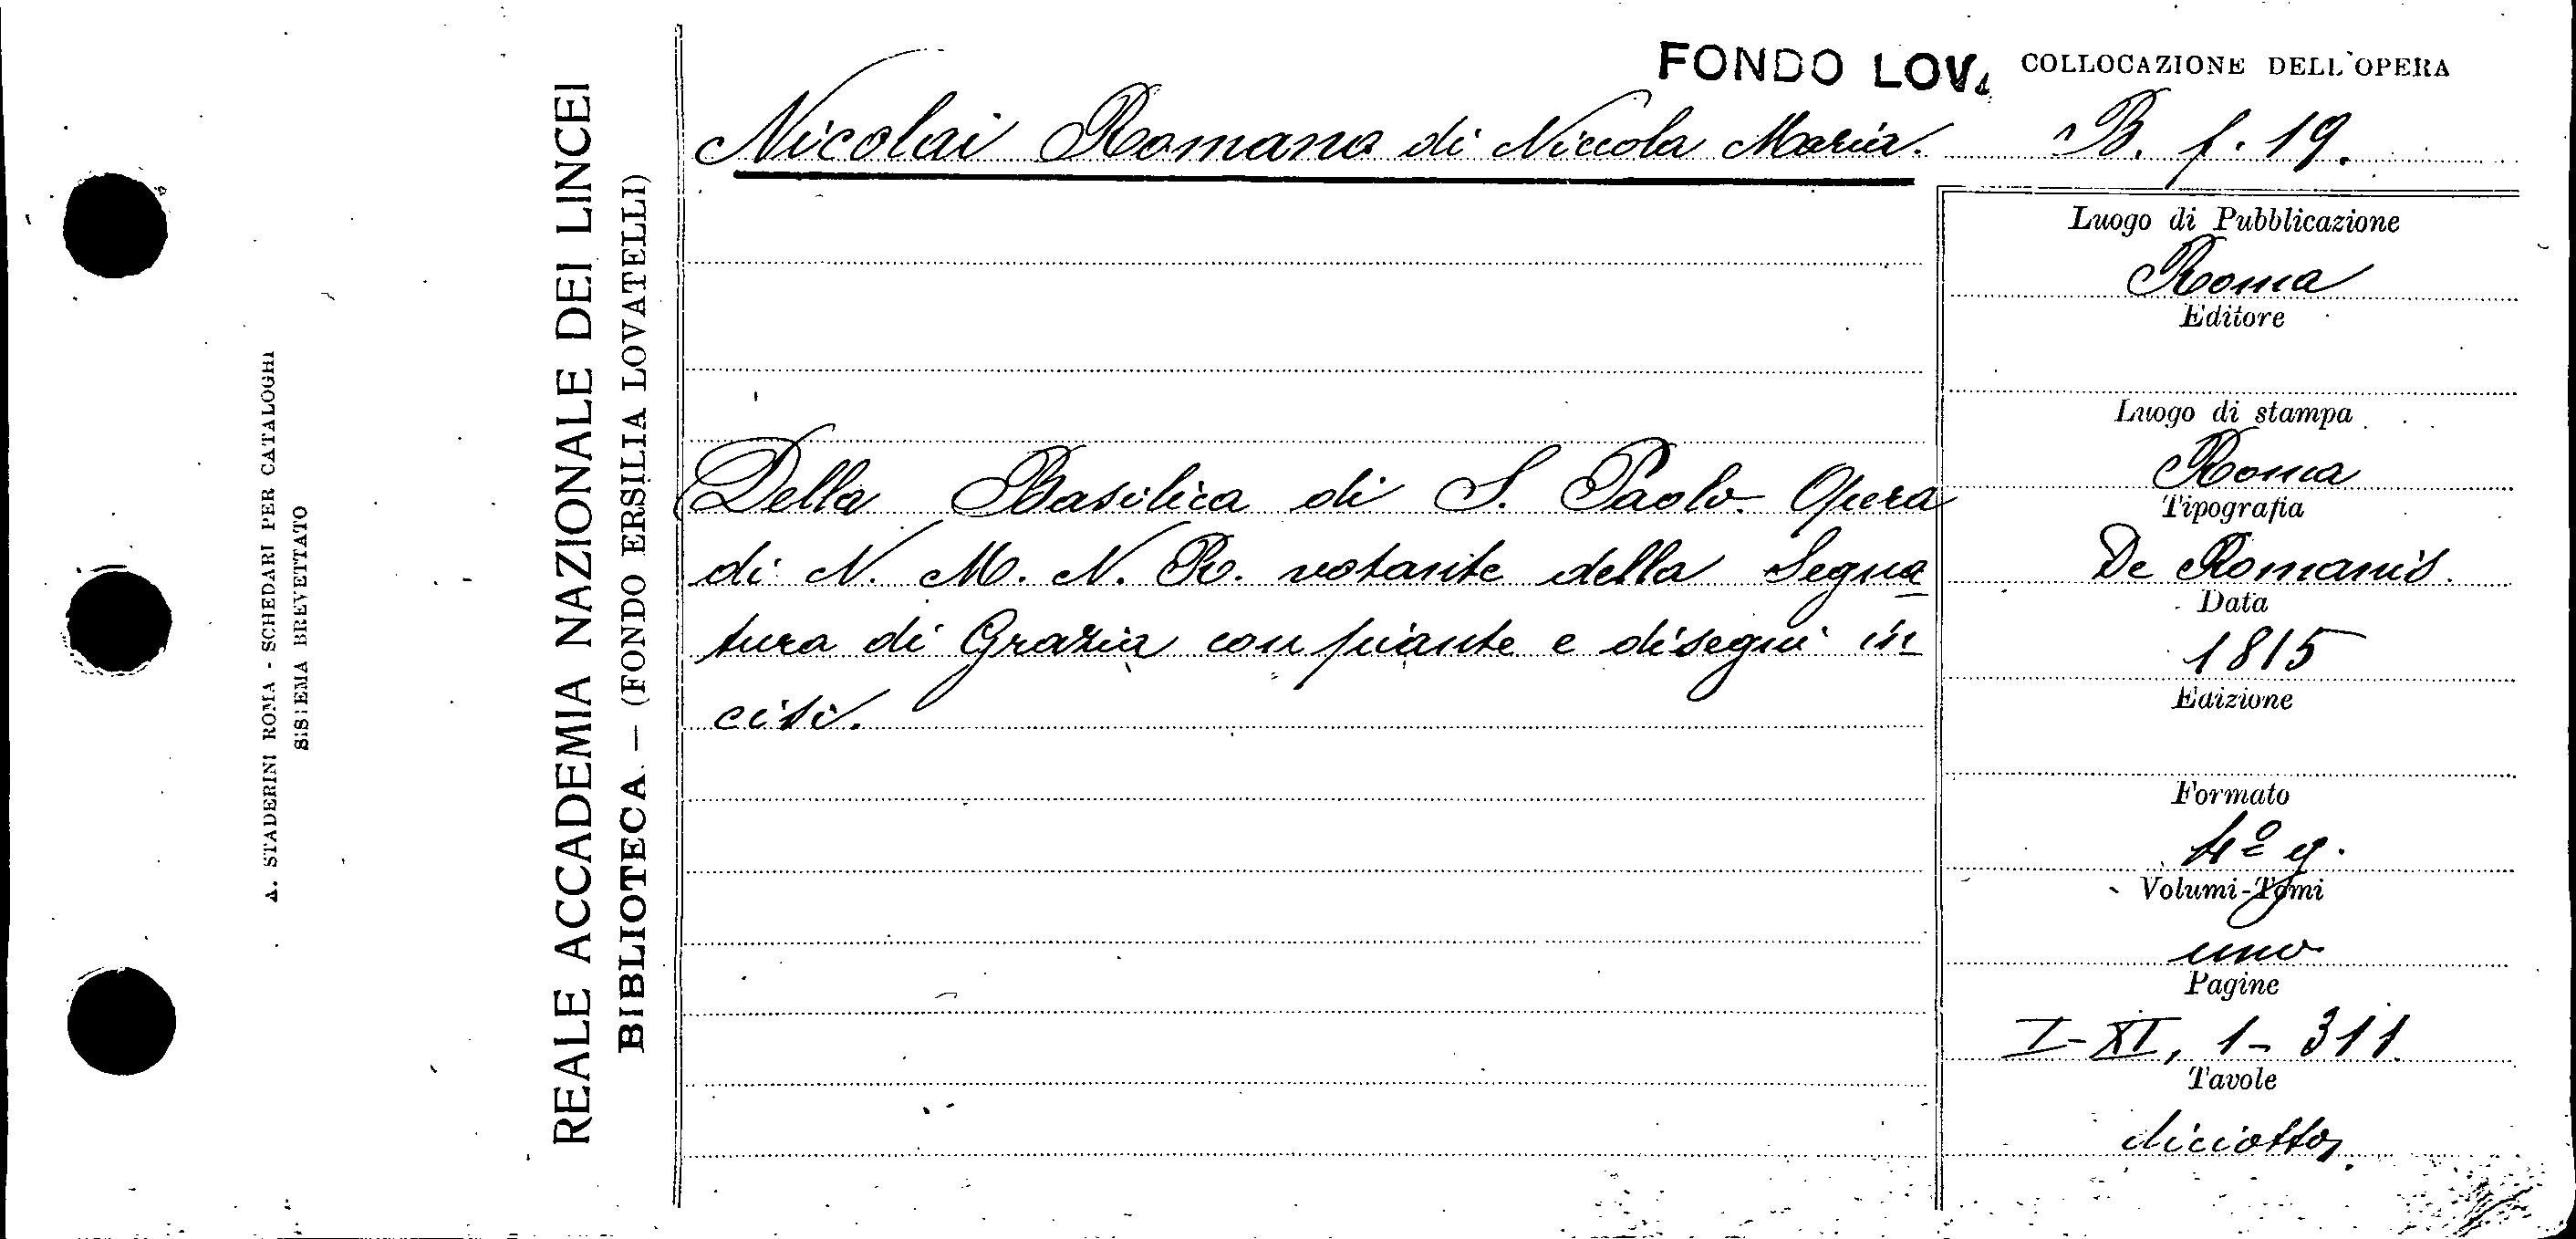 A. STADERINI ROMA - SCHEDARI PER CATALOGHI
SISTEMA BREVETTATO
REALE ACCADEMIA NAZIONALE DEI LINCEI
BIBLIOTECA. — (FONDO ERSILIA LOVATELLI)
FONDO LOV.
COLLOCAZIONE DELL'OPERA
Nicolai Romano di Niccola Maria.
B. f. 19.
Della Basilica di S. Paolo. Opera
di N. M. N. R. votante della Segna
tura di Grazia con piante e disegni in
cisi.
Luogo di Pubblicazione
Roma
Editore
Luogo di stampa
Roma
Tipografia
De Romanis.
Data
1815
Edizione
Formato
4º g.
Volumi-Tomi
uno
Pagine
I-XI, 1-311
Tavole
diciotto